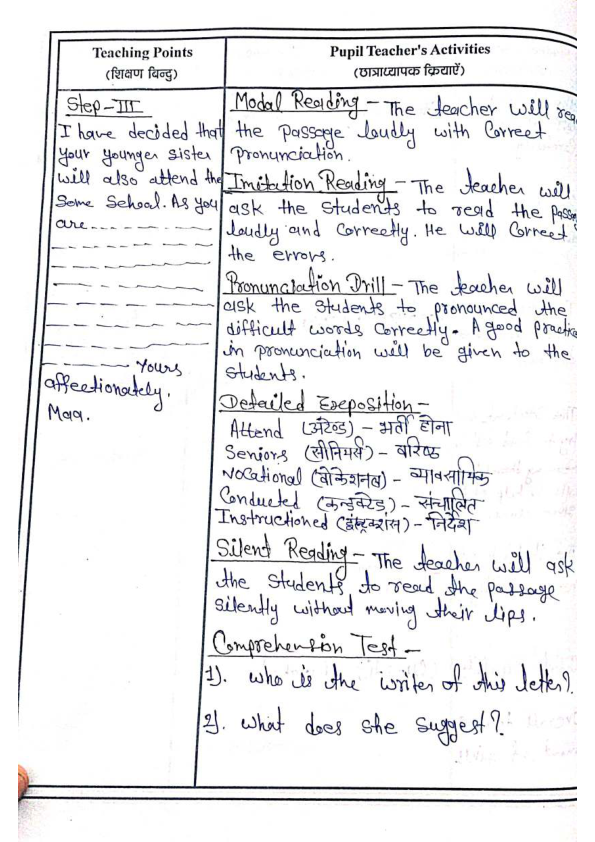 Teaching Points
(शिक्षण बिन्दु)
Step-III
I have decided that
your younger sister
will also attend the
Same School. As you
are
Yours
affectionately.
Maa.
Pupil Teacher's Activities
(छात्राध्यापक क्रियाएँ)
Modal Reading - The teacher will rea
the passage loudly with Correct
Pronunciation.
Imitation Reading - The teacher will
ask the Students to read the passa
loudly and Correctly. He will Correct
the errors.
Pronunciation Drill - The teacher will
ask the students to pronounced the
difficult words Correctly. A good practice
in pronunciation will be given to the
Students.
Detailed Exeposition -
Attend (अटेन्ड) - भर्ती होना
Seniors (सीनियर्स) - वरिष्ठ
Vocational (वोकेशनल) - व्यावसायिक
Conducted (कन्डक्टेड) - संचालित
Instructioned (इंस्ट्रक्शंस) - निर्देश
Silent Reading - The teacher will ask
the Students to read the passage
silently without moving their lips.
Comprehension Test -
1). who is the writer of this letter?
2). what does she suggest?